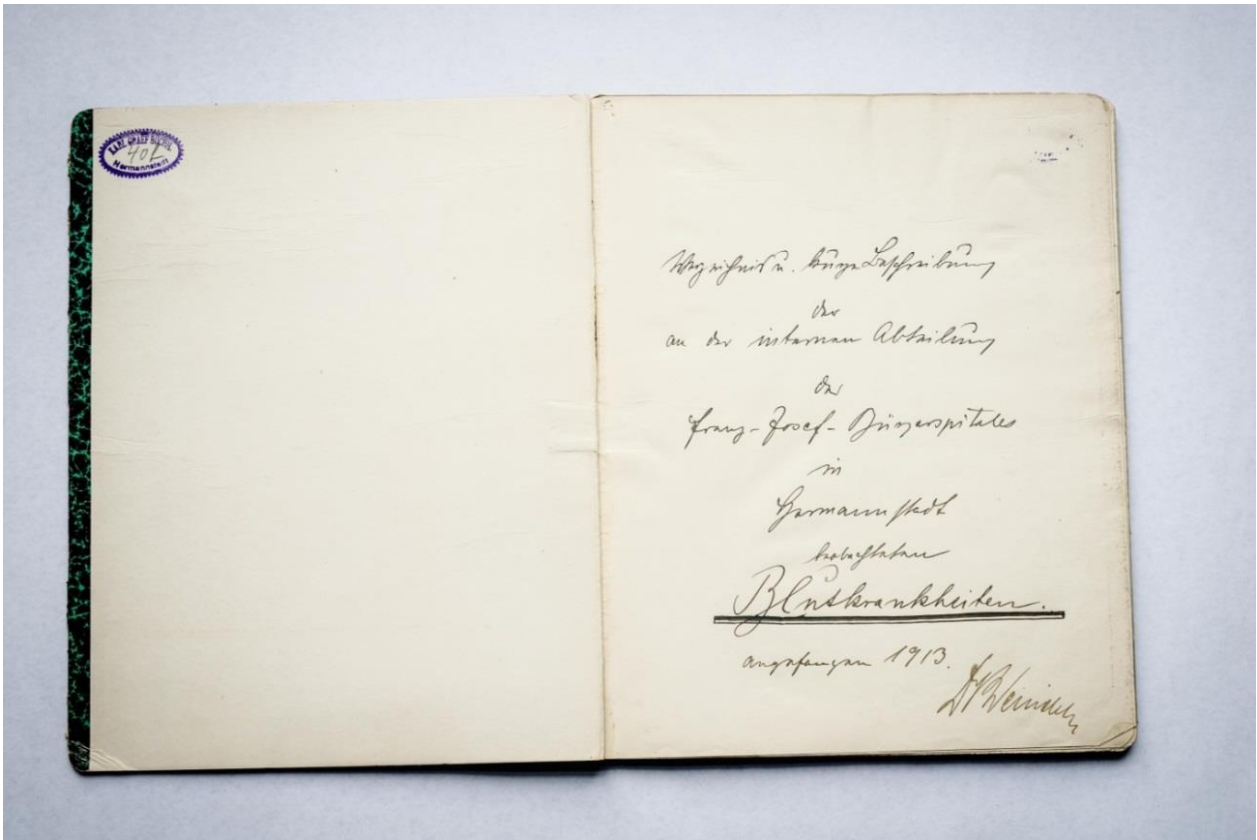 40L
Hermannstadt
Verzeichnis u. kurze Beschreibung
der
an der internen Abteilung
des
Franz-Josef-Bürgerspitales
in
Hermannstadt
beobachteten
Blutkrankheiten.
angefangen 1913.